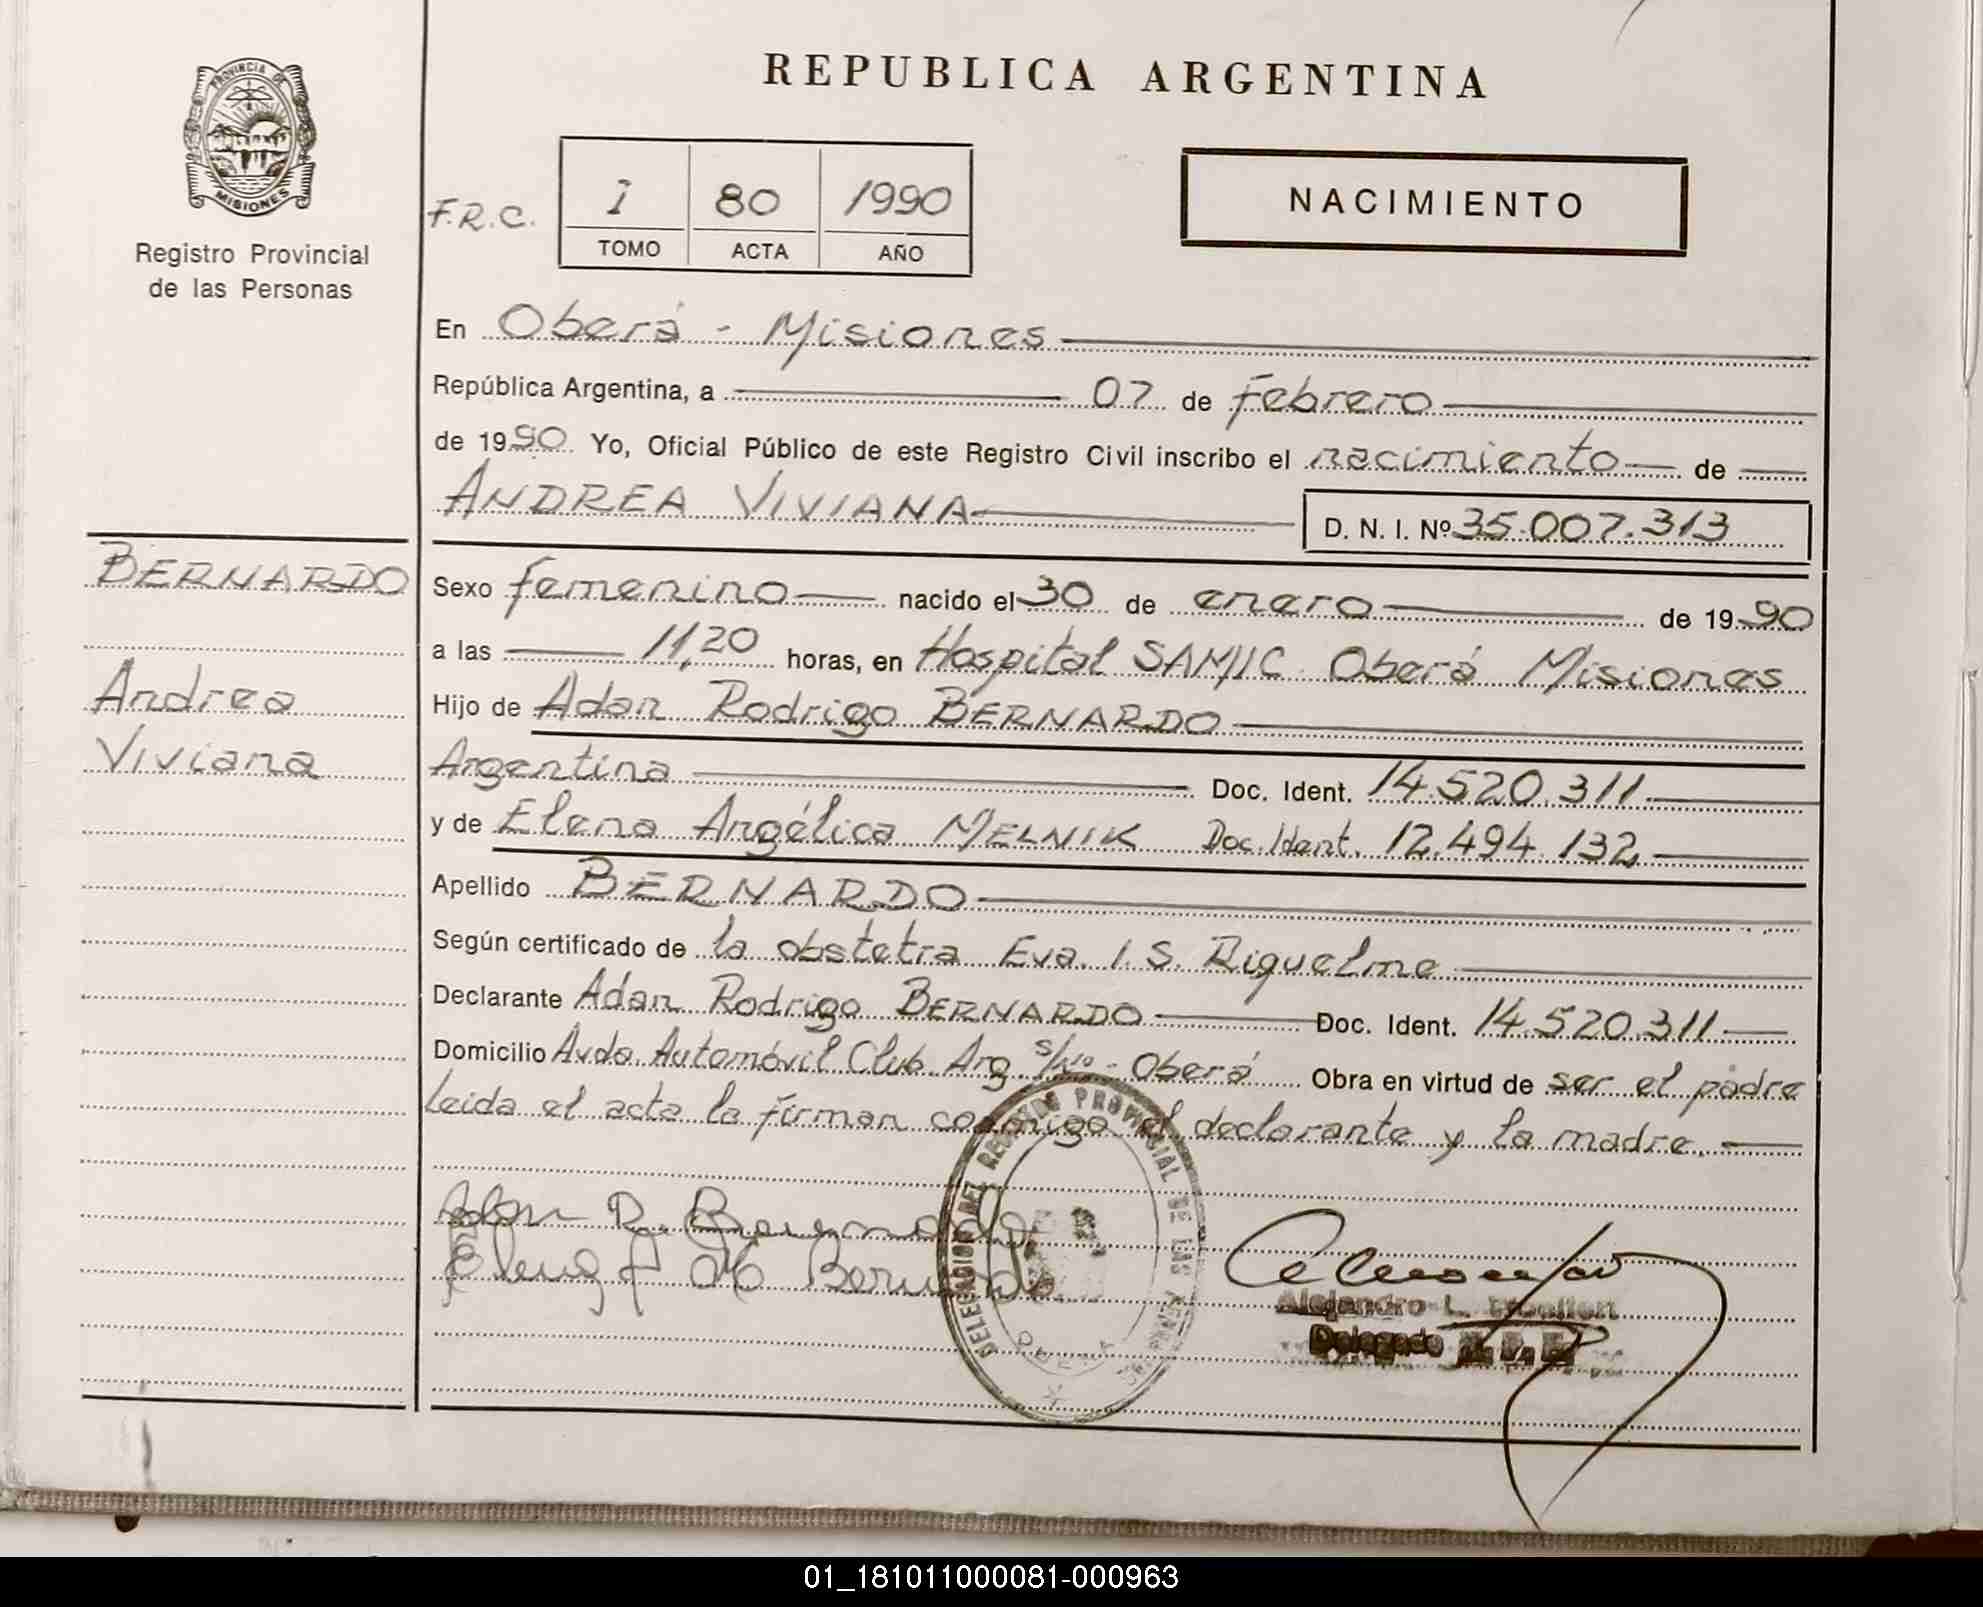 REPUBLICA ARGENTINA
PROVINCIA DE
MISIONES
Registro Provincial
de las Personas
NACIMIENTO
F.R.C.
I 80 1990
TOMO ACTA AÑO
En Oberá - Misiones
República Argentina, a 07 de Febrero
de 1990 Yo, Oficial Público de este Registro Civil inscribo el nacimiento de
ANDREA VIVIANA D. N. I. Nº 35.007.313
BERNARDO
Andrea
Viviana
Sexo femenino nacido el 30 de enero de 1990
a las 11,20 horas, en Hospital SAMIC Oberá Misiones
Hijo de Adan Rodrigo BERNARDO
Argentina Doc. Ident. 14.520.311
y de Elena Angélica MELNIK Doc. Ident. 12.494.132
Apellido BERNARDO
Según certificado de la obstetra Eva. I. S. Riquelme
Declarante Adan Rodrigo BERNARDO Doc. Ident. 14.520.311
Domicilio Avda. Automóvil Club Arg. s/No - Oberá Obra en virtud de ser el padre
Leida el acta la firman conmigo el declarante y la madre.
Adan R. Bernardo
Elena A M Bernardo
DELEGACION DEL REGISTRO PROVINCIAL DE LAS PERSONAS
OBERA
Alejandro L.
Delegado R. P. P.
01_181011000081-000963